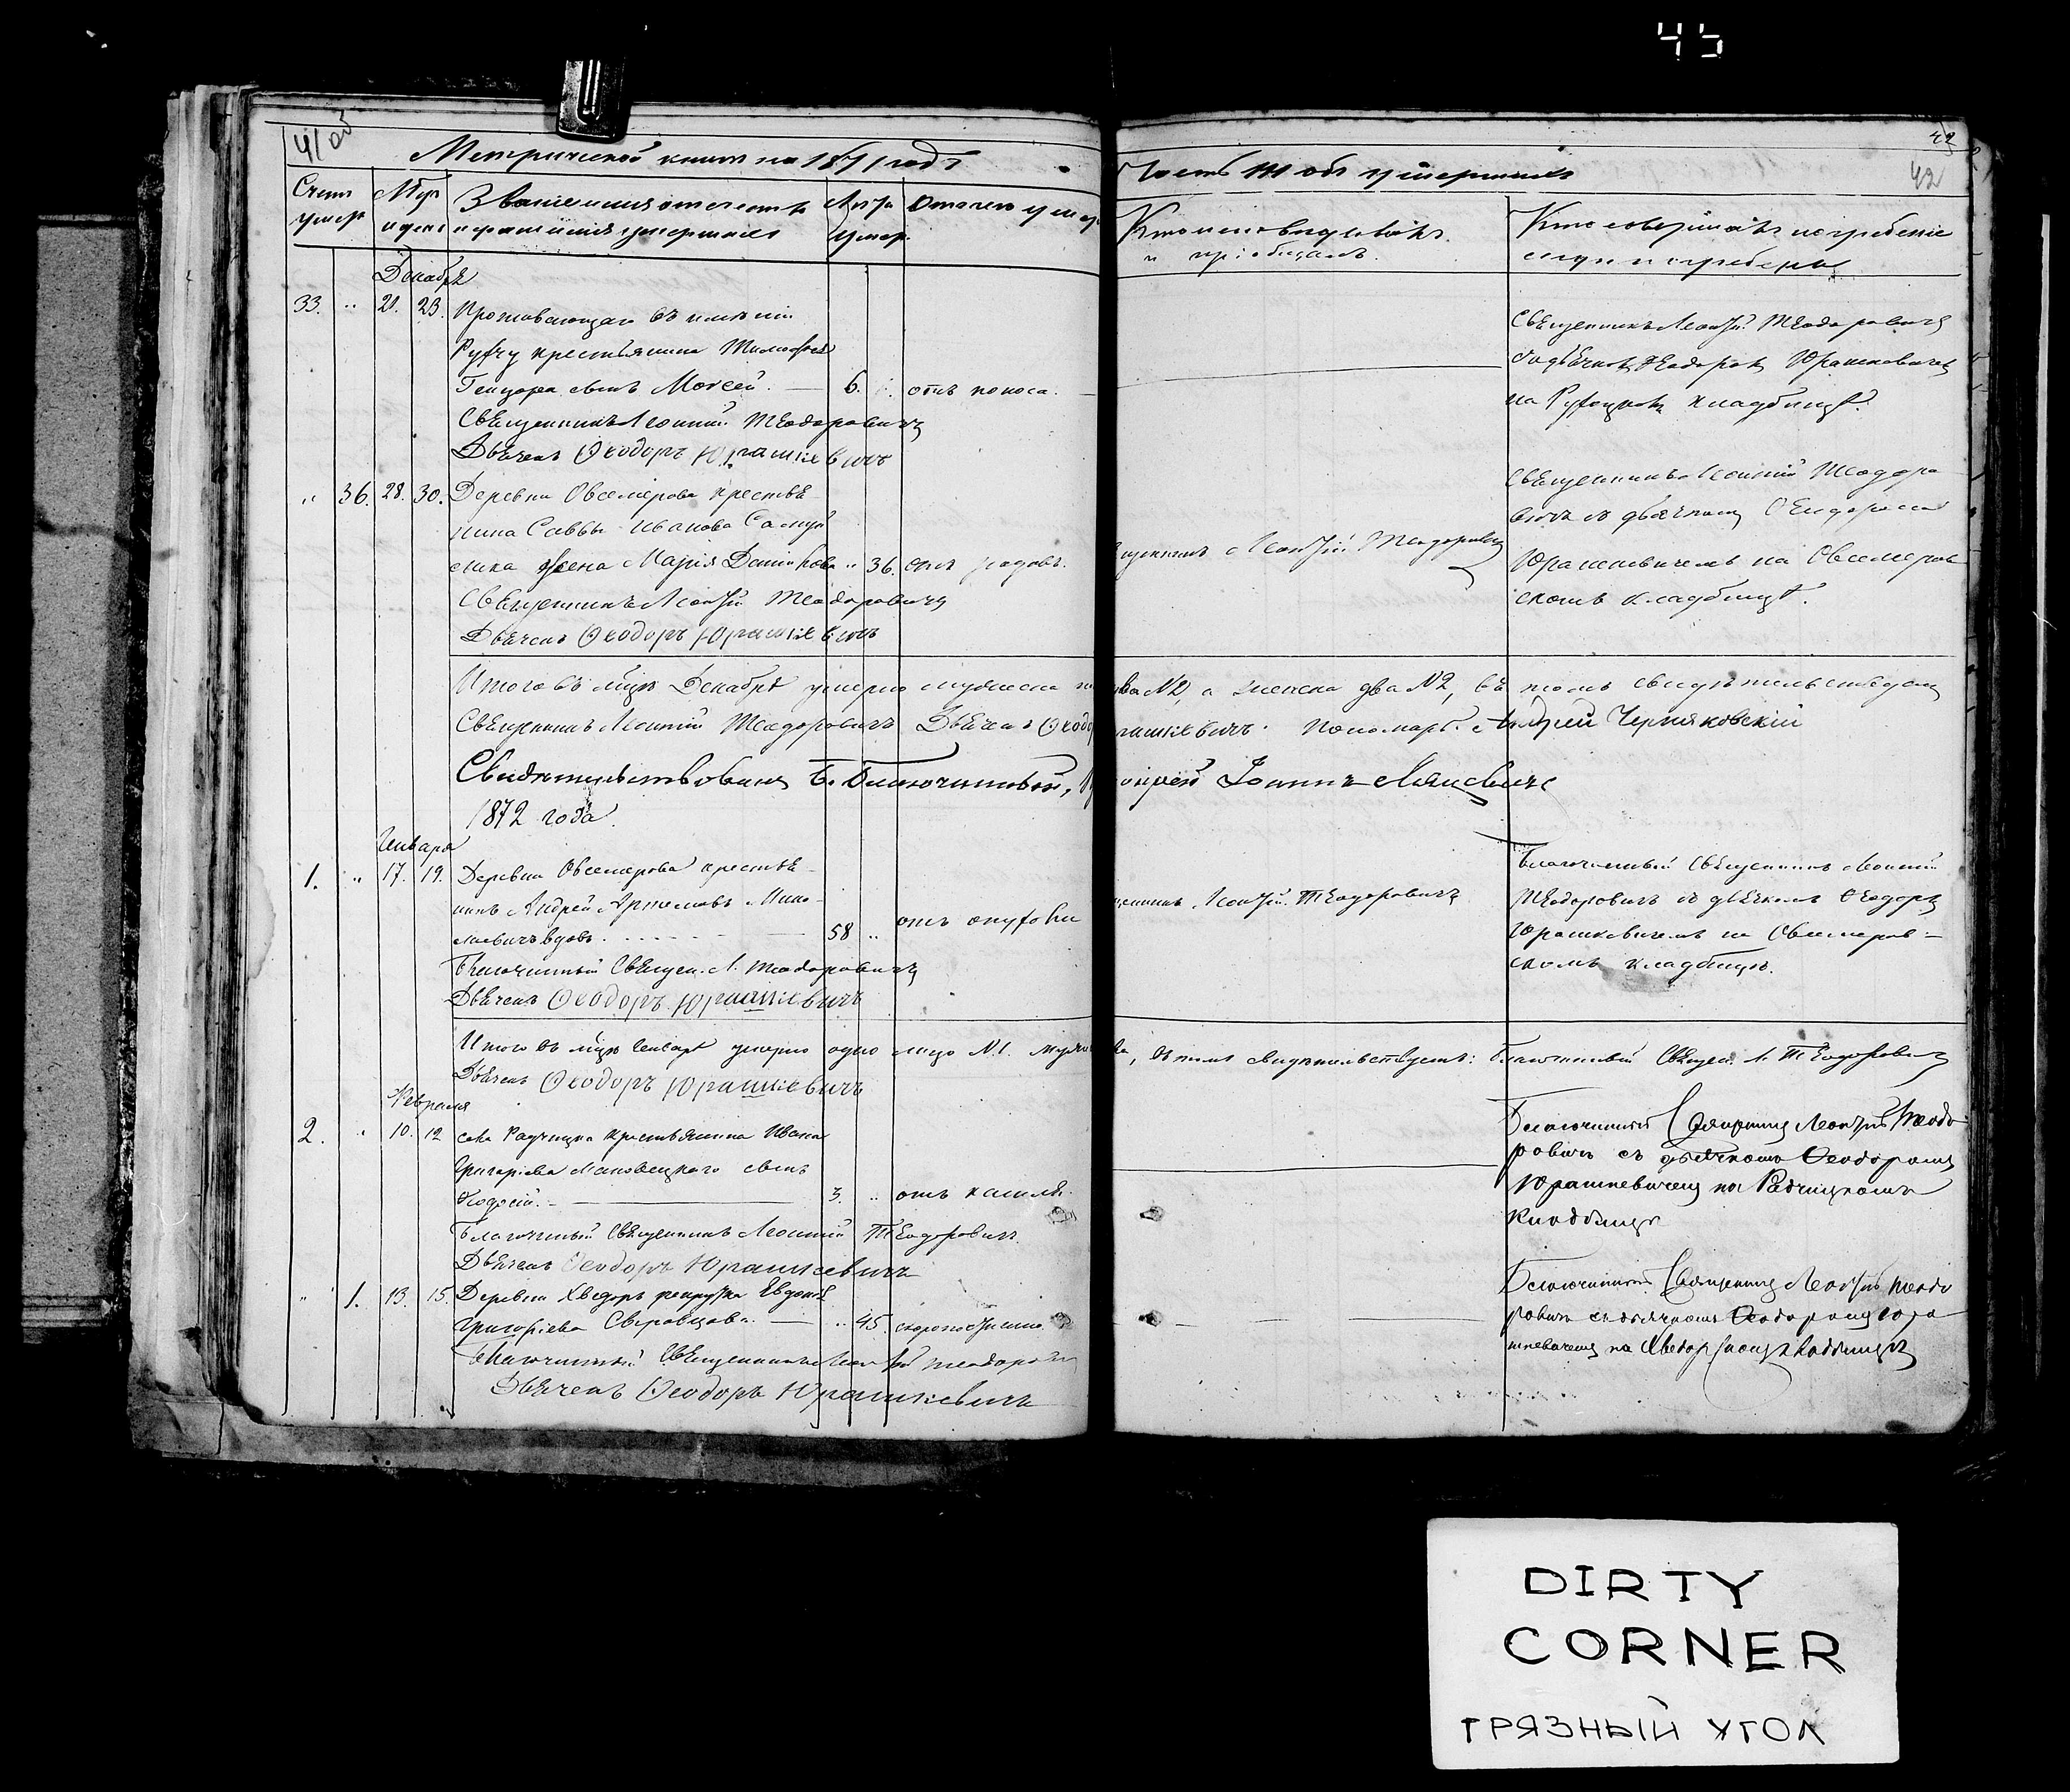 45
41об
42
42
Метрической книги на 1871 годъ
Часть III объ умершихъ
Счетъ умер.
Мѣс. и день
Званіе имя отечество и фамилія умершихъ
Лѣта умер.
Отъ чего умер
Кто исповѣдывалъ и пріобщалъ.
Кто совершалъ погребеніе и гдѣ погребены
Декабрь
33. " 21. 23. Проживающаго въ имѣніи
крестьянина Тимофея
сынъ Моѵсей. — 6. отъ поноса.
Священникъ Леонтій Теодоровичъ
Дьячекъ Ѳеодоръ Юрашкевичъ
Священникъ Леонтій Теодоровичъ
съ дьячкомъ Ѳеодоромъ Юрашкевичемъ
на кладбищѣ.
" 36. 28. 30. Деревни Овсемирова крестья-
нина Саввы Иванова
жена Марія " 36. отъ родовъ.
Священникъ Леонтій Теодоровичъ
Дьячекъ Ѳеодоръ Юрашкевичъ
Леонтій Теодоровичъ
Священникъ Леонтій Теодоро-
вичъ съ дьячкомъ Ѳеодоромъ
Юрашкевичемъ на Овсемиров-
скомъ кладбищѣ.
Итого въ мцѣ Декабрѣ умерло мужеска два №2, а женска два №2, въ томъ свидѣтельствуемъ
Священникъ Леонтій Теодоровичъ Дьячекъ Ѳеодоръ Юрашкевичъ. Пономарь Андрей Черняковскій
Свидѣтельствовалъ Благочинный, Іоаннъ
1872 года.
Генваря
1. " 17. 19. Деревни Овсемирова крестья-
нинъ Андрей Артемовъ
вдовъ. — 58 "
Благочинный Священ. Л. Теодоровичъ
Дьячекъ Ѳеодоръ Юрашкевичъ
Леонтій Теодоровичъ
Благочинный Священникъ Леонтій
Теодоровичъ съ дьячкомъ Ѳеодоромъ
Юрашкевичемъ на Овсемиров-
скомъ кладбищѣ.
Итого въ мцѣ Генварѣ умерло одно лицо №1. въ томъ свидѣтельствуетъ: Благочинный Священ. Л. Теодоровичъ
Дьячекъ Ѳеодоръ Юрашкевичъ
Февраля
2. " 10. 12 села Радчицка крестьянина Ивана
Григоріева сынъ
Ѳеодосій. — 3. " отъ кашля.
Благочинный Священникъ Леонтій Теодоровичъ.
Дьячекъ Ѳеодоръ Юрашкевичъ
Благочинный Священникъ Леонтій Теодо-
ровичъ съ дьячкомъ Ѳеодоромъ
Юрашкевичемъ на Радчицкомъ
кладбищѣ
" 1. 13. 15. Деревни Хведоръ рекрутка Евдокія
Григоріева — " 45. скоропостижно.
Благочинный Священникъ Леонтій Теодоровичъ
Дьячекъ Ѳеодоръ Юрашкевичъ
Благочинный Священникъ Леонтій Теодо-
ровичъ съ дьячкомъ Ѳеодоромъ Юра-
шкевичемъ на кладбищѣ
DIRTY
CORNER
ГРЯЗНЫЙ УГОЛ